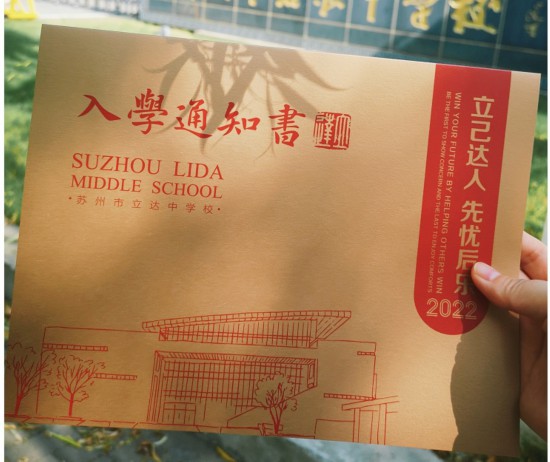 入學通知書
立達
SUZHOU LIDA
MIDDLE SCHOOL
·苏州市立达中学校·
立己达人 先忧后乐
WIN YOUR FUTURE BY HELPING OTHERS WIN
BE THE FIRST TO SHOW CONCERN AND THE LAST TO ENJOY COMFORTS
2022